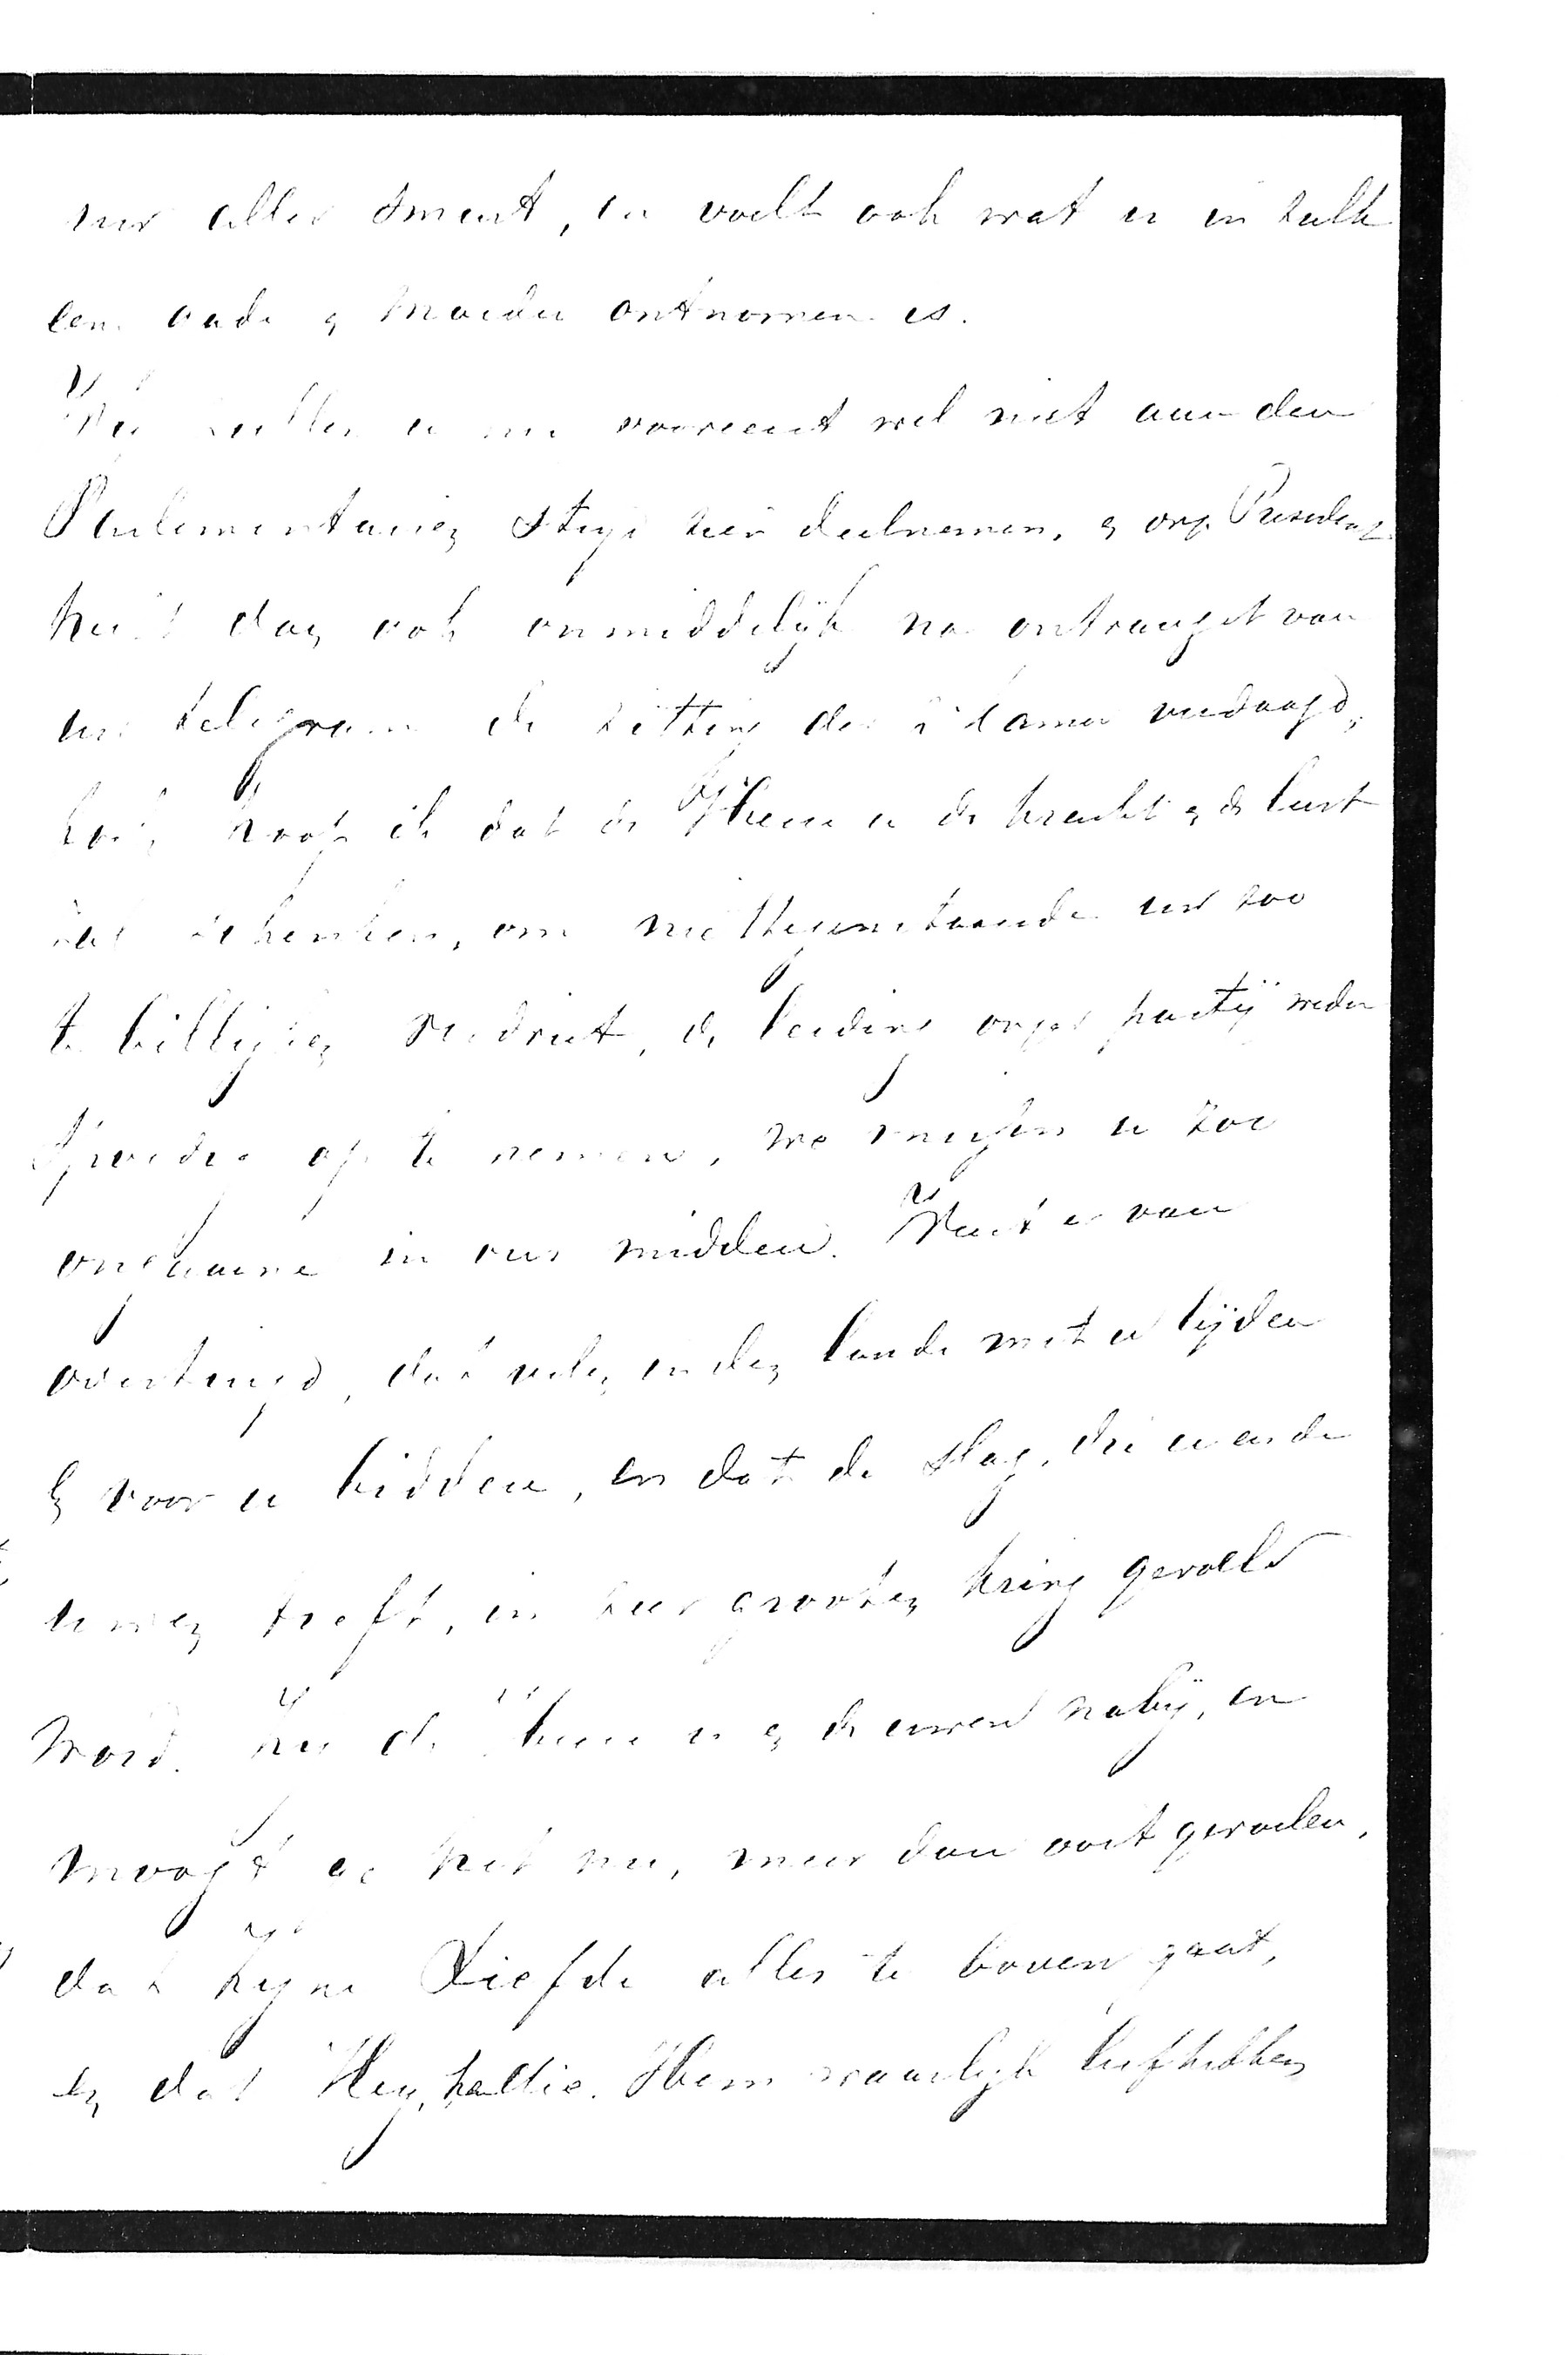 uw aller smart, en voelt ook wat er in zulk
een vade & Moeder ontnomen is.
Wij zullen u nu vooreerst wel niet aan den
Parlementairen strijd zien deelnemen, & onze President
heeft dan ook onmiddelijk na ontvangst van
uw telegram de zitting der kamer verdaagd,
toch hoop ik dat de Heere u de kracht & de lust
zal schenken, om niettegenstaande uw zoo
te billijken verdriet, de leiding onzer partij weder
spoedig op te nemen, we missen u zoo
ongaarne in ons midden. Weest er van
overtuigd, dat velen in den lande met u lijden
en voor u bidden, en dat de slag, die u en de
uwen treft, in zeer grooten kring gevoeld
word. Zij de Heere u & de uwen nabij, en
moogt ge het nu, meer dan ooit gevoelen,
dat Zijne Liefde alles te boven gaat,
en dat Hij, hen die Hem waarlijk liefhebben